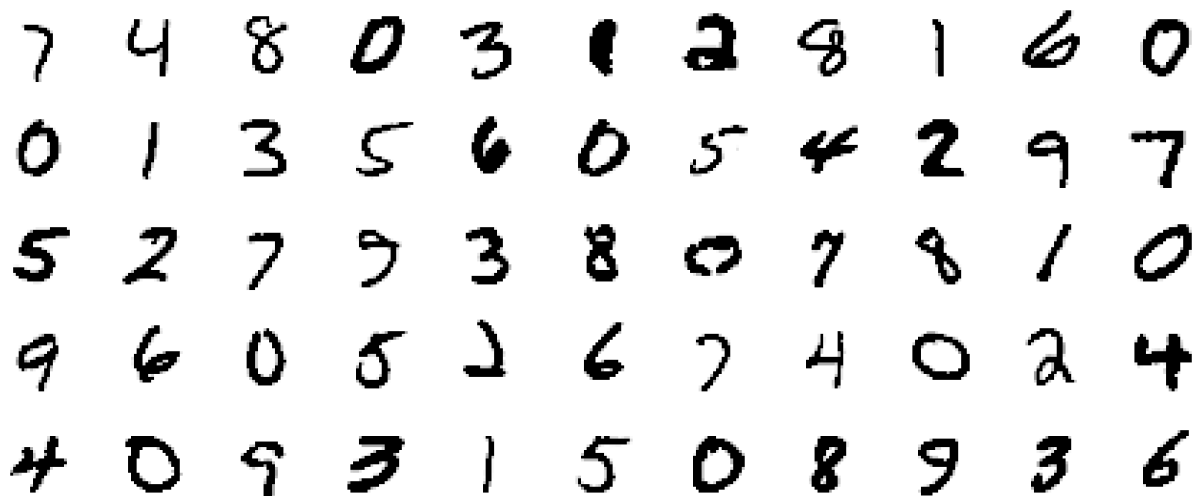 7 4 8 0 3 1 2 8 1 6 0
0 1 3 5 6 0 5 4 2 9 7
5 2 7 9 3 8 0 7 8 1 0
9 6 0 5 2 6 7 4 0 2 4
4 0 9 3 1 5 0 8 9 3 6